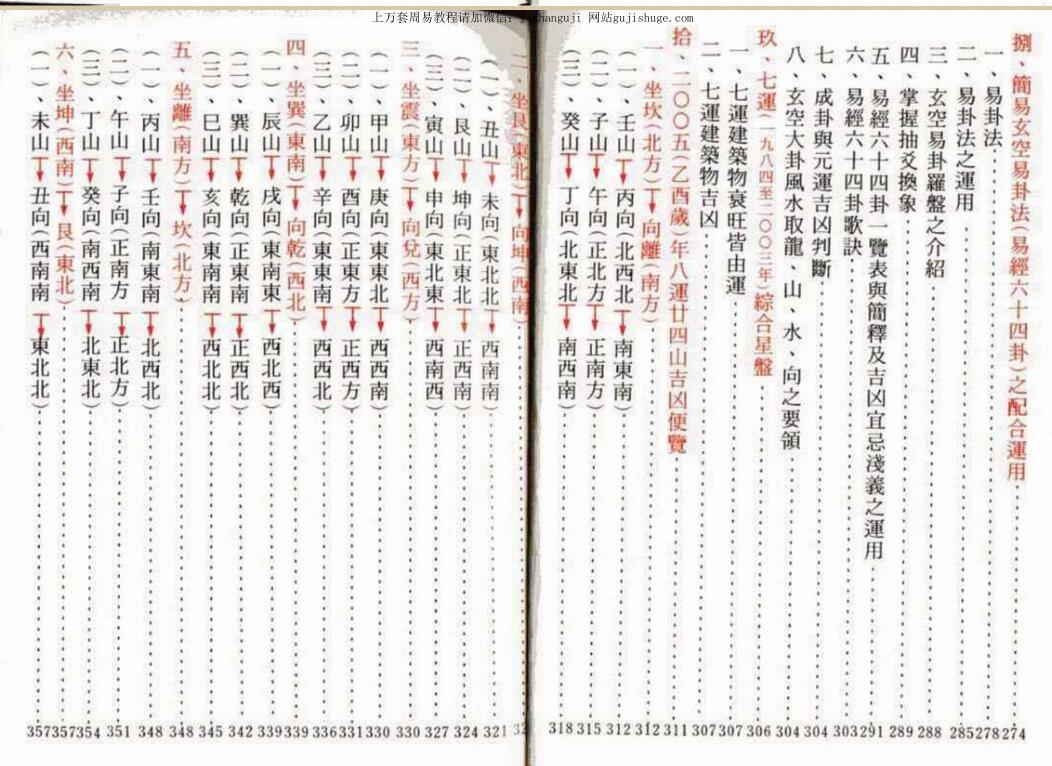 上万套周易教程请加微信：
hanguji 网站gujishuge.com
捌、簡易玄空易卦法(易經六十四卦)之配合運用 274
一、易卦法 278
二、易卦法之運用 285
三、玄空易卦羅盤之介紹 288
四、掌握抽爻換象 289
五、易經六十四卦一覽表與簡釋及吉凶宜忌淺義之運用 291
六、易經六十四卦歌訣 303
七、成卦與元運吉凶判斷 304
八、玄空大卦風水取龍、山、水、向之要領 304
玖、七運(一九八四至二〇〇三年)綜合星盤 306
一、七運建築物衰旺皆由運 307
二、七運建築物吉凶 307
拾、二〇〇五(乙酉歲)年八運廿四山吉凶便覽 311
一、坐坎(北方)→向離(南方) 312
(一)、壬山→丙向(北西北→南東南) 312
(二)、子山→午向(正北方→正南方) 315
(三)、癸山→丁向(北東北→南西南) 318
二、坐艮(東北)→向坤(西南) 32
(一)、丑山→未向(東北北→西南南) 321
(二)、艮山→坤向(正東北→正西南) 324
(三)、寅山→申向(東北東→西南西) 327
三、坐震(東方)→向兌(西方) 330
(一)、甲山→庚向(東東北→西西南) 330
(二)、卯山→酉向(正東方→正西方) 331
(三)、乙山→辛向(東東南→西西北) 336
四、坐巽(東南)→向乾(西北) 339
(一)、辰山→戌向(東南東→西北西) 339
(二)、巽山→乾向(正東南→正西北) 342
(三)、巳山→亥向(東南南→西北北) 345
五、坐離(南方)→坎(北方) 348
(一)、丙山→壬向(南東南→北西北) 348
(二)、午山→子向(正南方→正北方) 351
(三)、丁山→癸向(南西南→北東北) 354
六、坐坤(西南)→艮(東北) 357
(一)、未山→丑向(西南南→東北北) 357